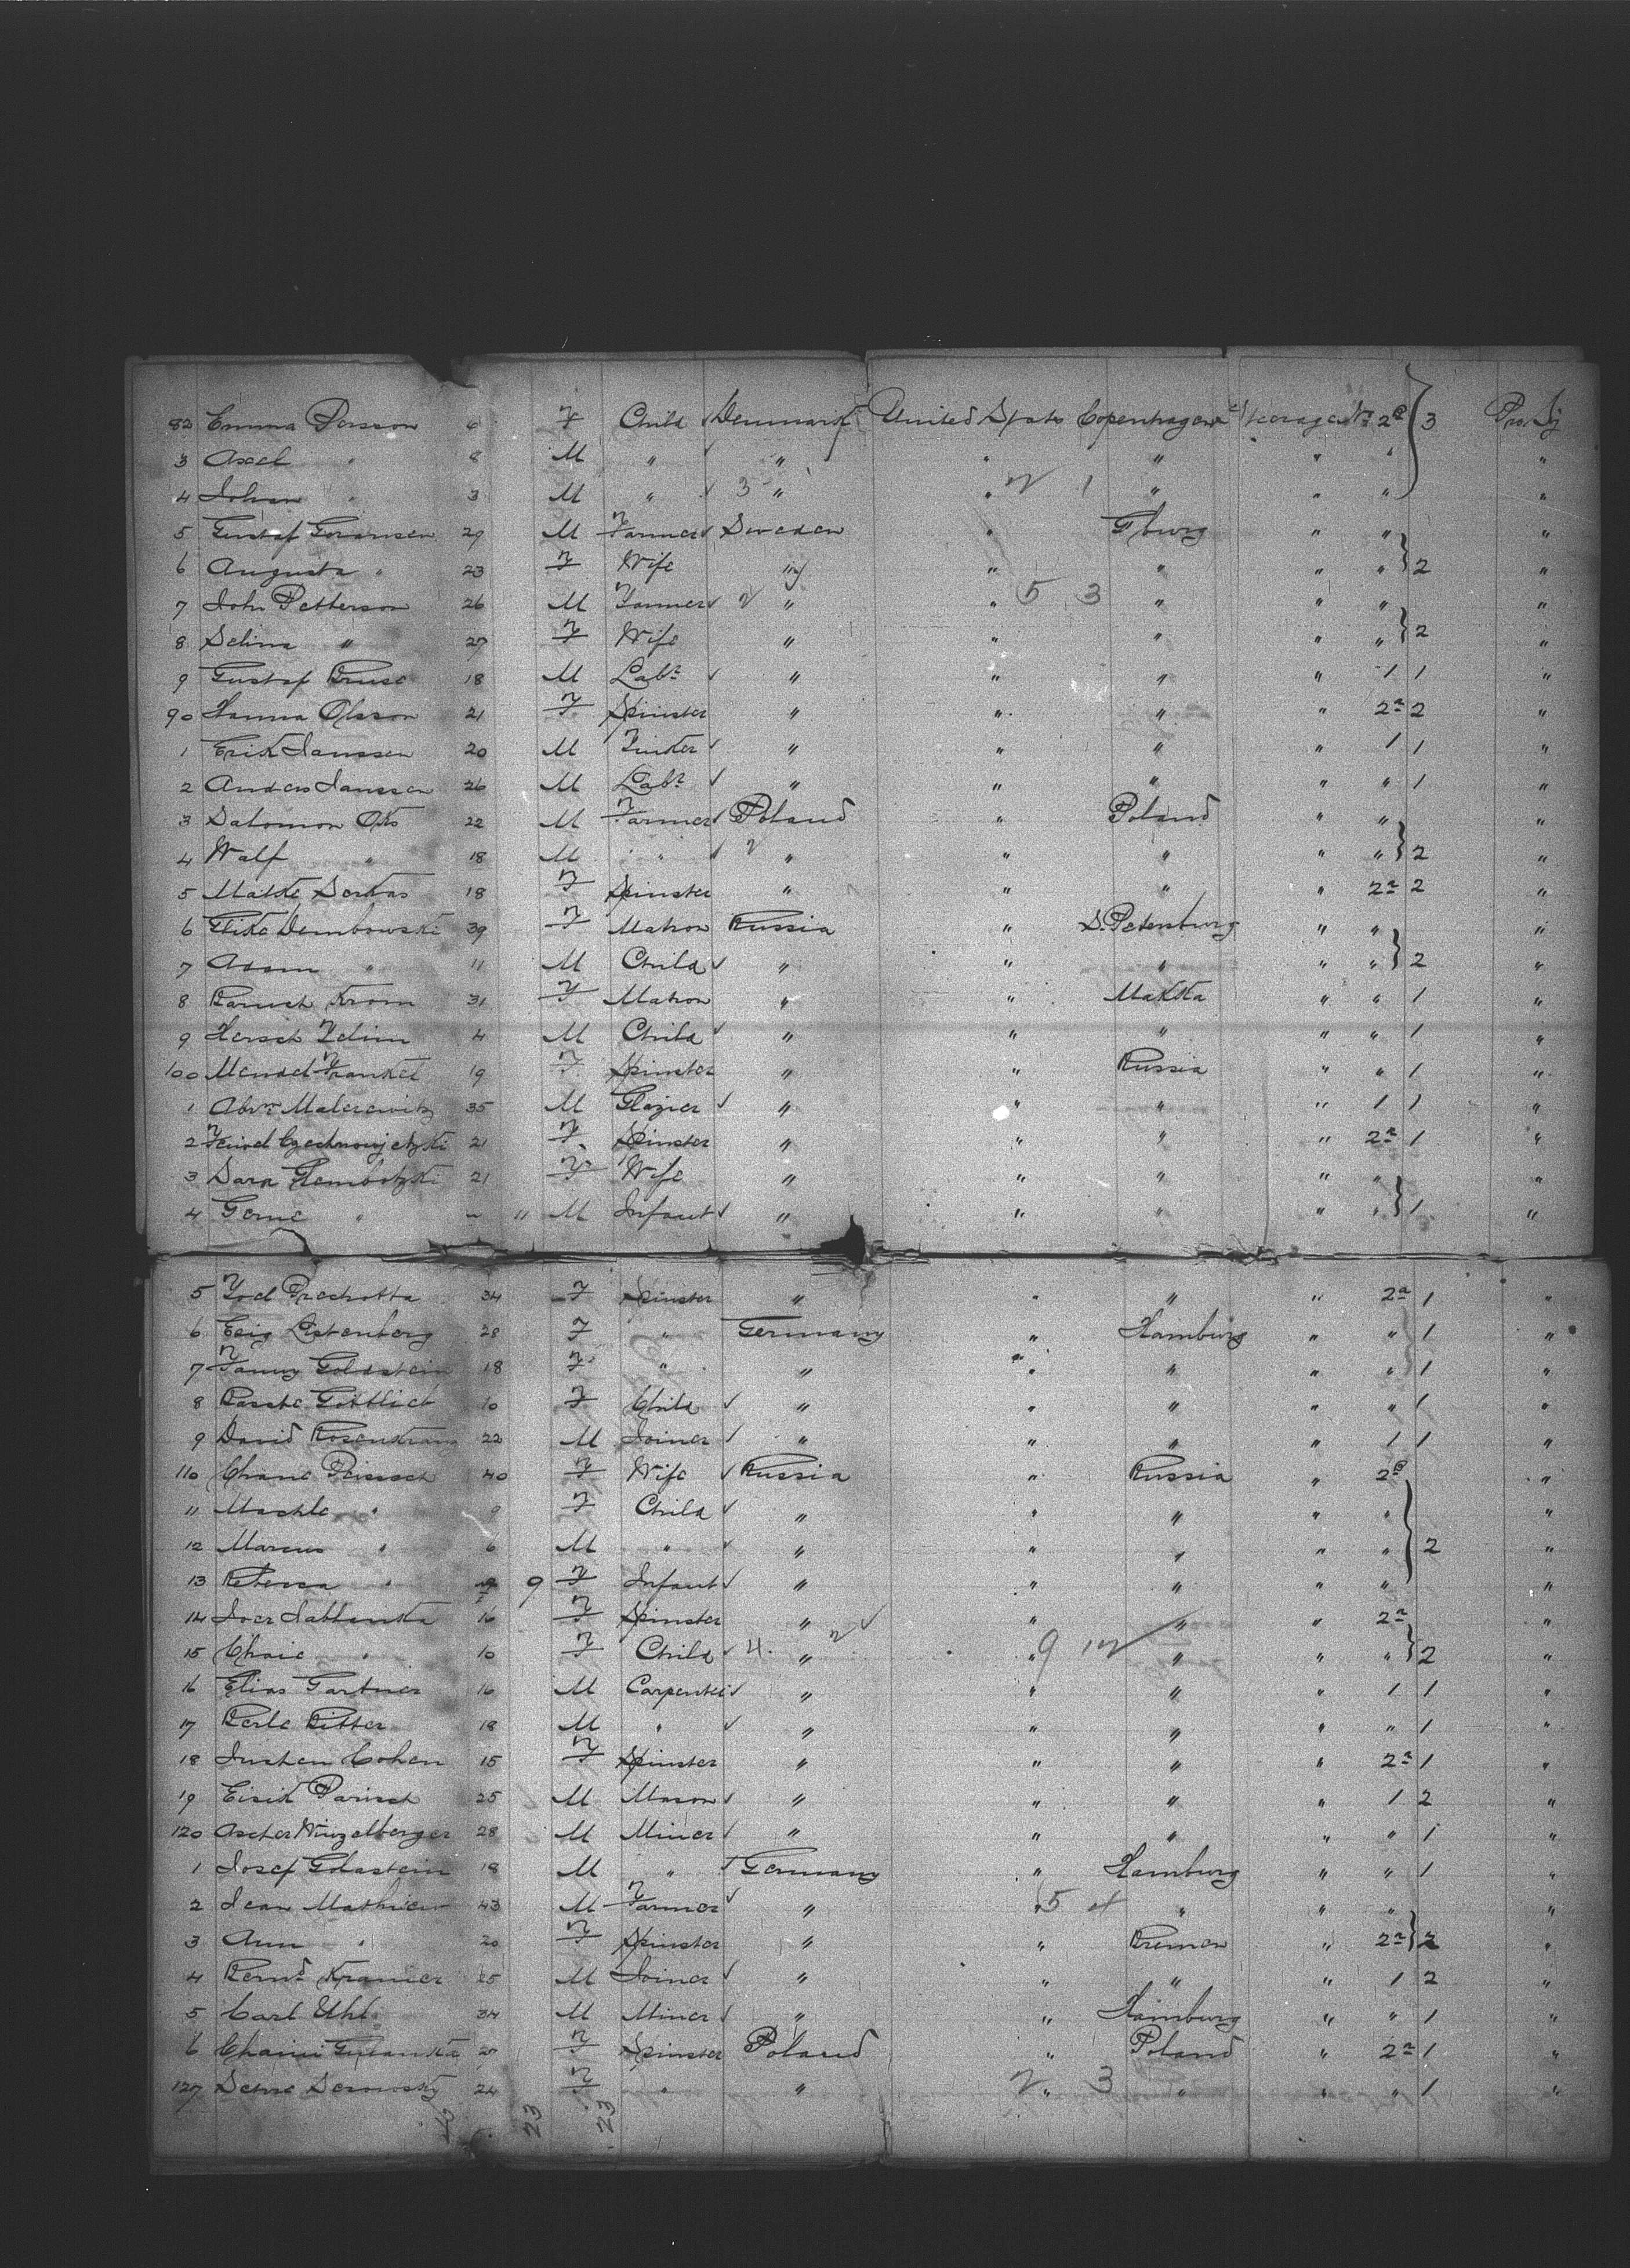 82 Emma Persson 6 F Child Denmark United States Copenhagen Steerage No 2a 3 Pro. Sj
3 Axel " 8 M " " " " " " "
4 Johan " 3 M " 3 " " 2 1 " " " "
5 Gustaf Goransen 29 M Farmer Sweden " Gburg " " "
6 Augusta " 23 F Wife " " " " " 2 "
7 John Petterson 26 M Farmer 2 " " 5 3 " " " "
8 Selina " 27 F Wife " " " " " 2 "
9 Gustaf Bruse 18 M Labr " " " " 1 1 "
90 Hanna Olsson 21 F Spinster " " " " 2a 2 "
1 Erik Janssen 20 M " " " " 1 1 "
2 Anders Janssen 26 M Labr " " " " " 1 "
3 Salomon 22 M Farmer Poland " Poland " " "
4 Walf " 18 M " 2 " " " " " 2 "
5 Malke 18 F Spinster " " " " 2a 2 "
6 Dembowski 39 F Matron Russia " S. Petersburg " " "
7 Adam " 11 M Child " " " " " 2 "
8 Baruch Krom 31 F Matron " " Makka " " 1 "
9 Hersch 4 M Child " " " " " 1 "
100 Mendel Frankel 19 F Spinster " " Russia " " 1 "
1 Abrm Malerewitz 35 M Glazier " " " " 1 1 "
2 21 F Spinster " " " " 2a 1 "
3 Sara Glembotzki 21 F Wife " " " " " "
4 " " 11 M Infant " " " " " 1 "
5 Prechotta 34 F Spinster " " " " 2a 1 "
6 28 F " Germany " Hamburg " " 1 "
7 Fanny Goldstein 18 F " " " " " " 1 "
8 Gottlieb 10 F Child " " " " " 1 "
9 David Rosenkranz 22 M Joiner " " " " 1 1 "
110 Chane 40 F Wife Russia " Russia " 2a "
11 " 9 F Child " " " " " "
12 Marcus " 6 M " " " " " " 2 "
13 Rebecca " 9 F Infant " " " " " "
14 16 F Spinster " " " " 2a "
15 Chaie " 10 F Child 4 " 2 " 9 12 " " " 2 "
16 Elias Gartner 16 M Carpenter " " " " 1 1 "
17 Berle Ritter 18 M " " " " " " 1 "
18 Cohen 15 F Spinster " " " " 2a 1 "
19 Eisik Parisch 25 M Mason " " " " 1 2 "
120 Ascher Winzelberger 28 M Miner " " " " " 1 "
1 Josef Goldstein 18 M " Germany " Hamburg " " 1 "
2 Jean Mathieu 43 M Farmer " " 5 4 " " " "
3 Ann " 20 F Spinster " " Bremen " 2a 2 "
4 Bernd Kramer 25 M Joiner " " " " 1 2 "
5 Carl Uhl 34 M Miner " " Hamburg " " 1 "
6 F Spinster Poland " Poland " 2a 1 "
127 24 F " " 2 " 3 " " " 1 "
23 23